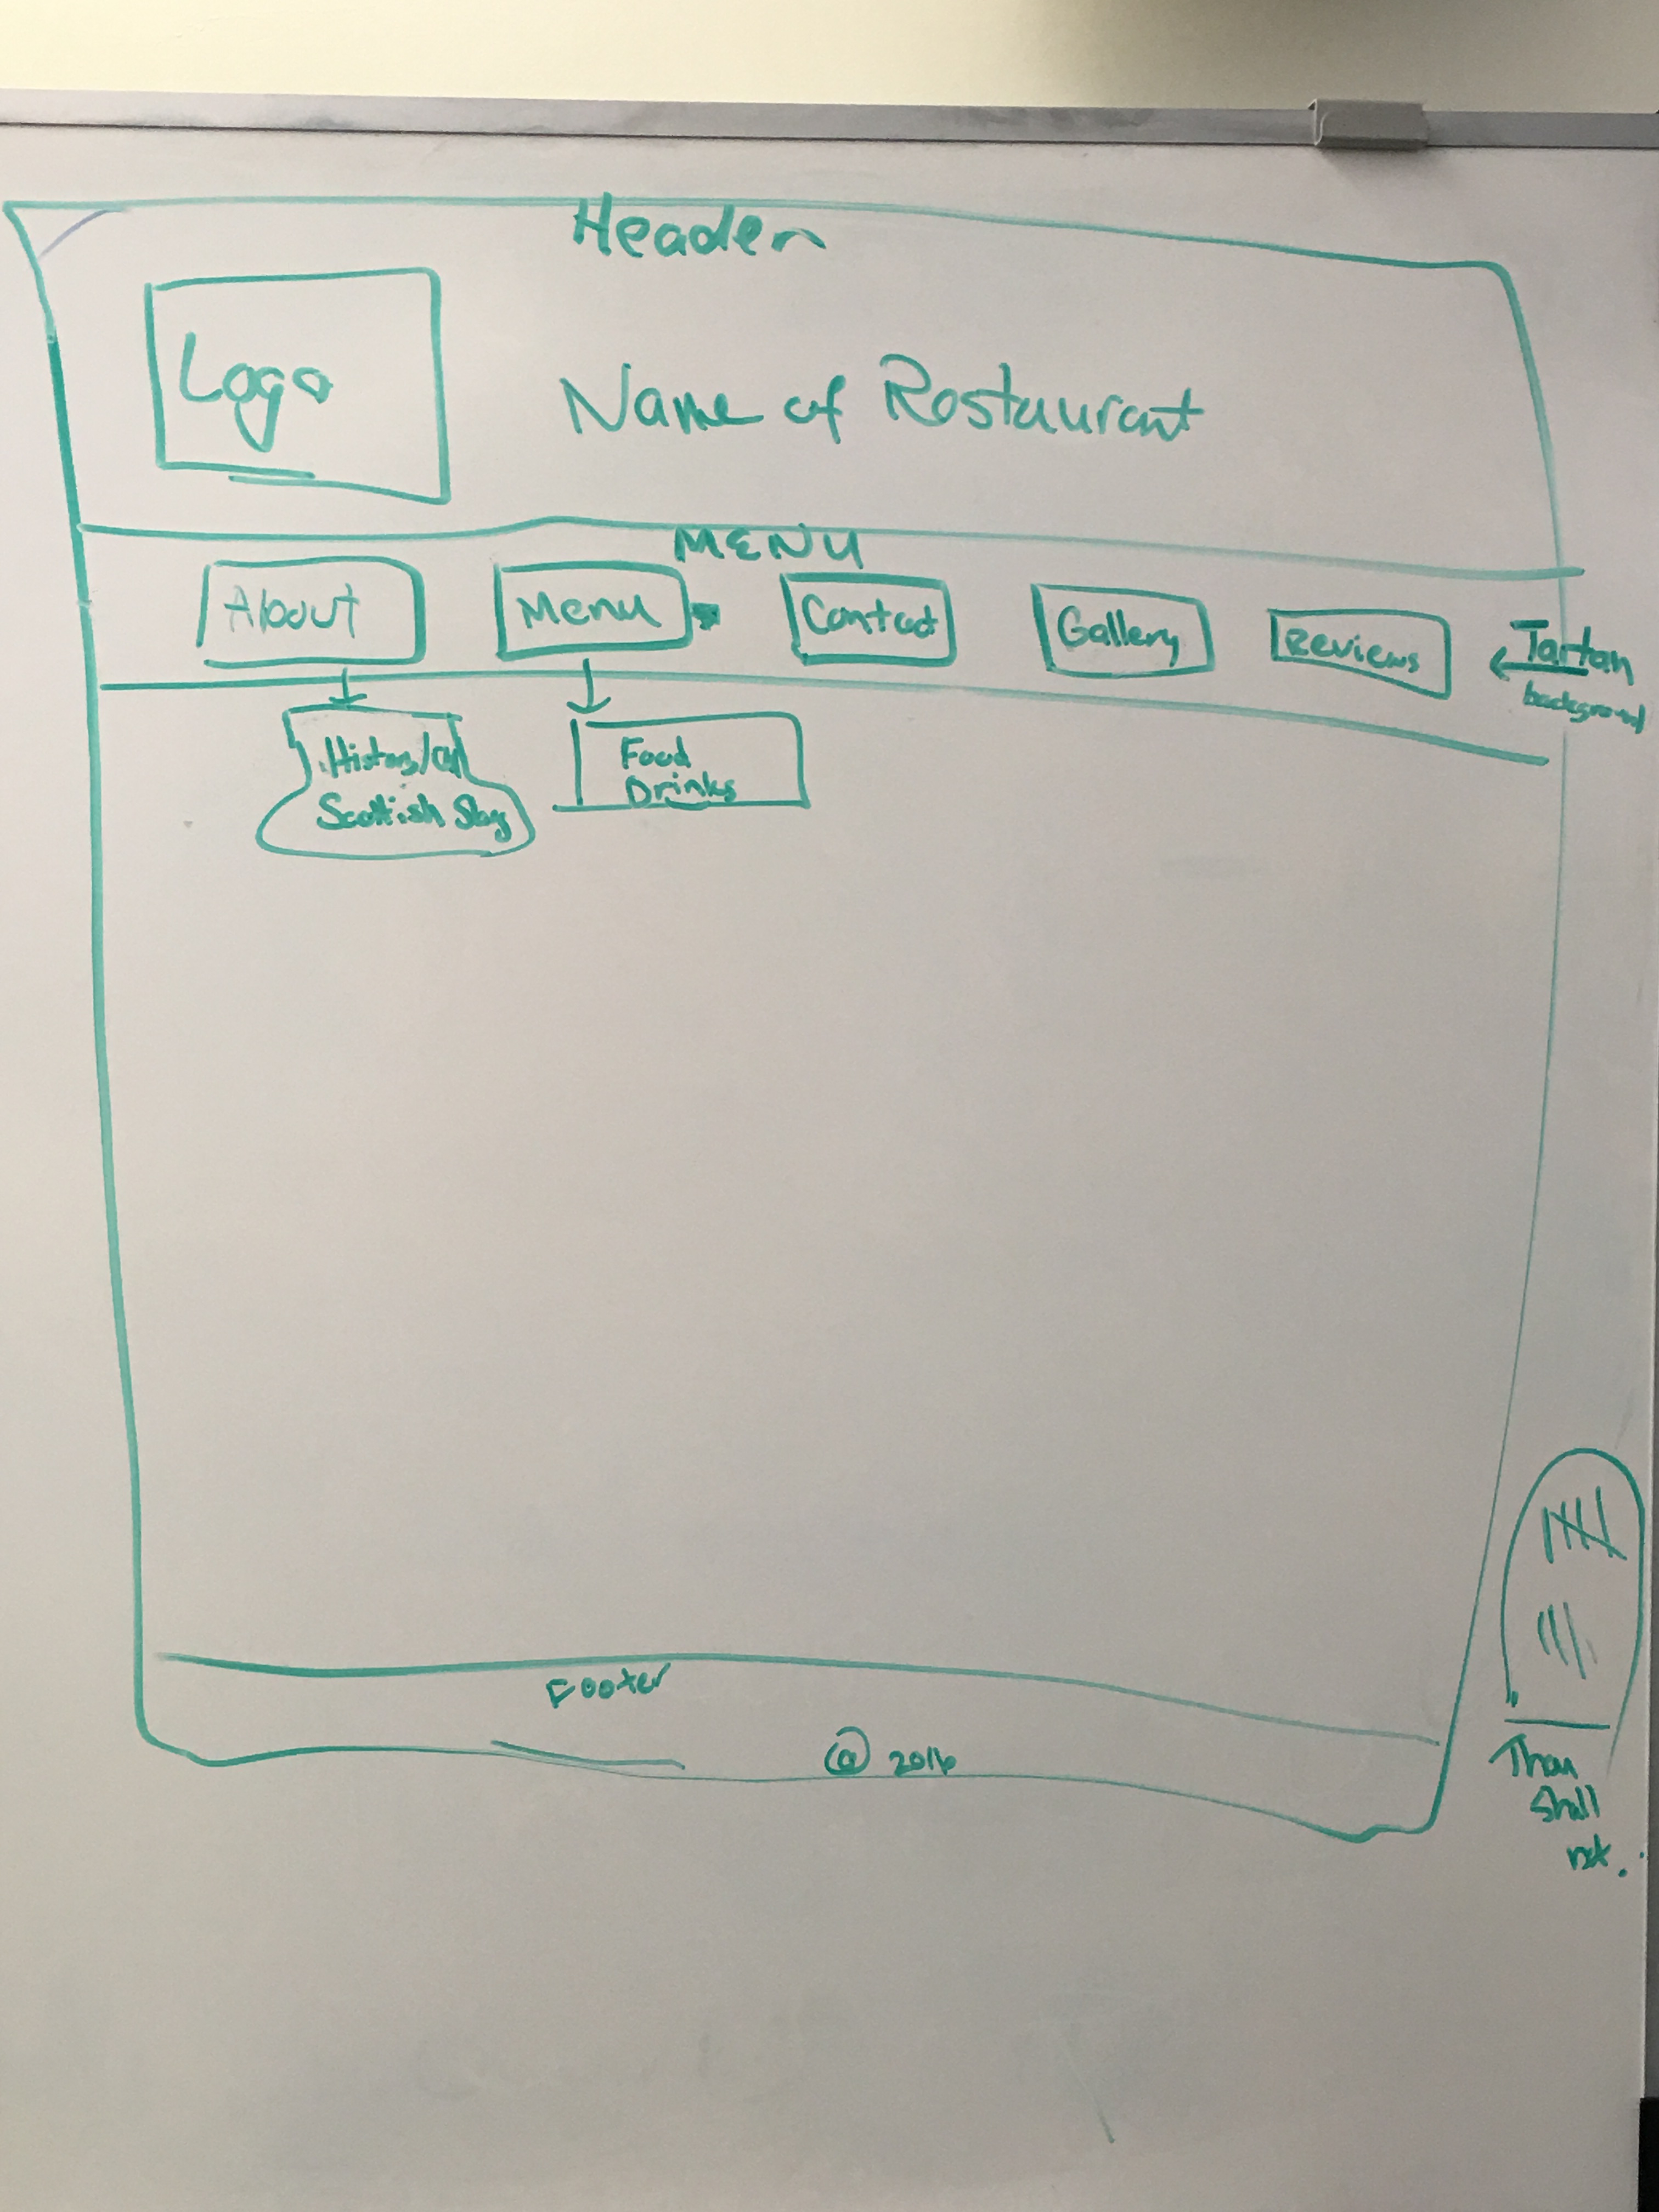 Header
Logo
Name of Restaurant
MENU
About
Menu
Contact
Gallery
Reviews
Tartan
background
Scottish
Food
Drinks
Footer
@ 2016
Shall
not.